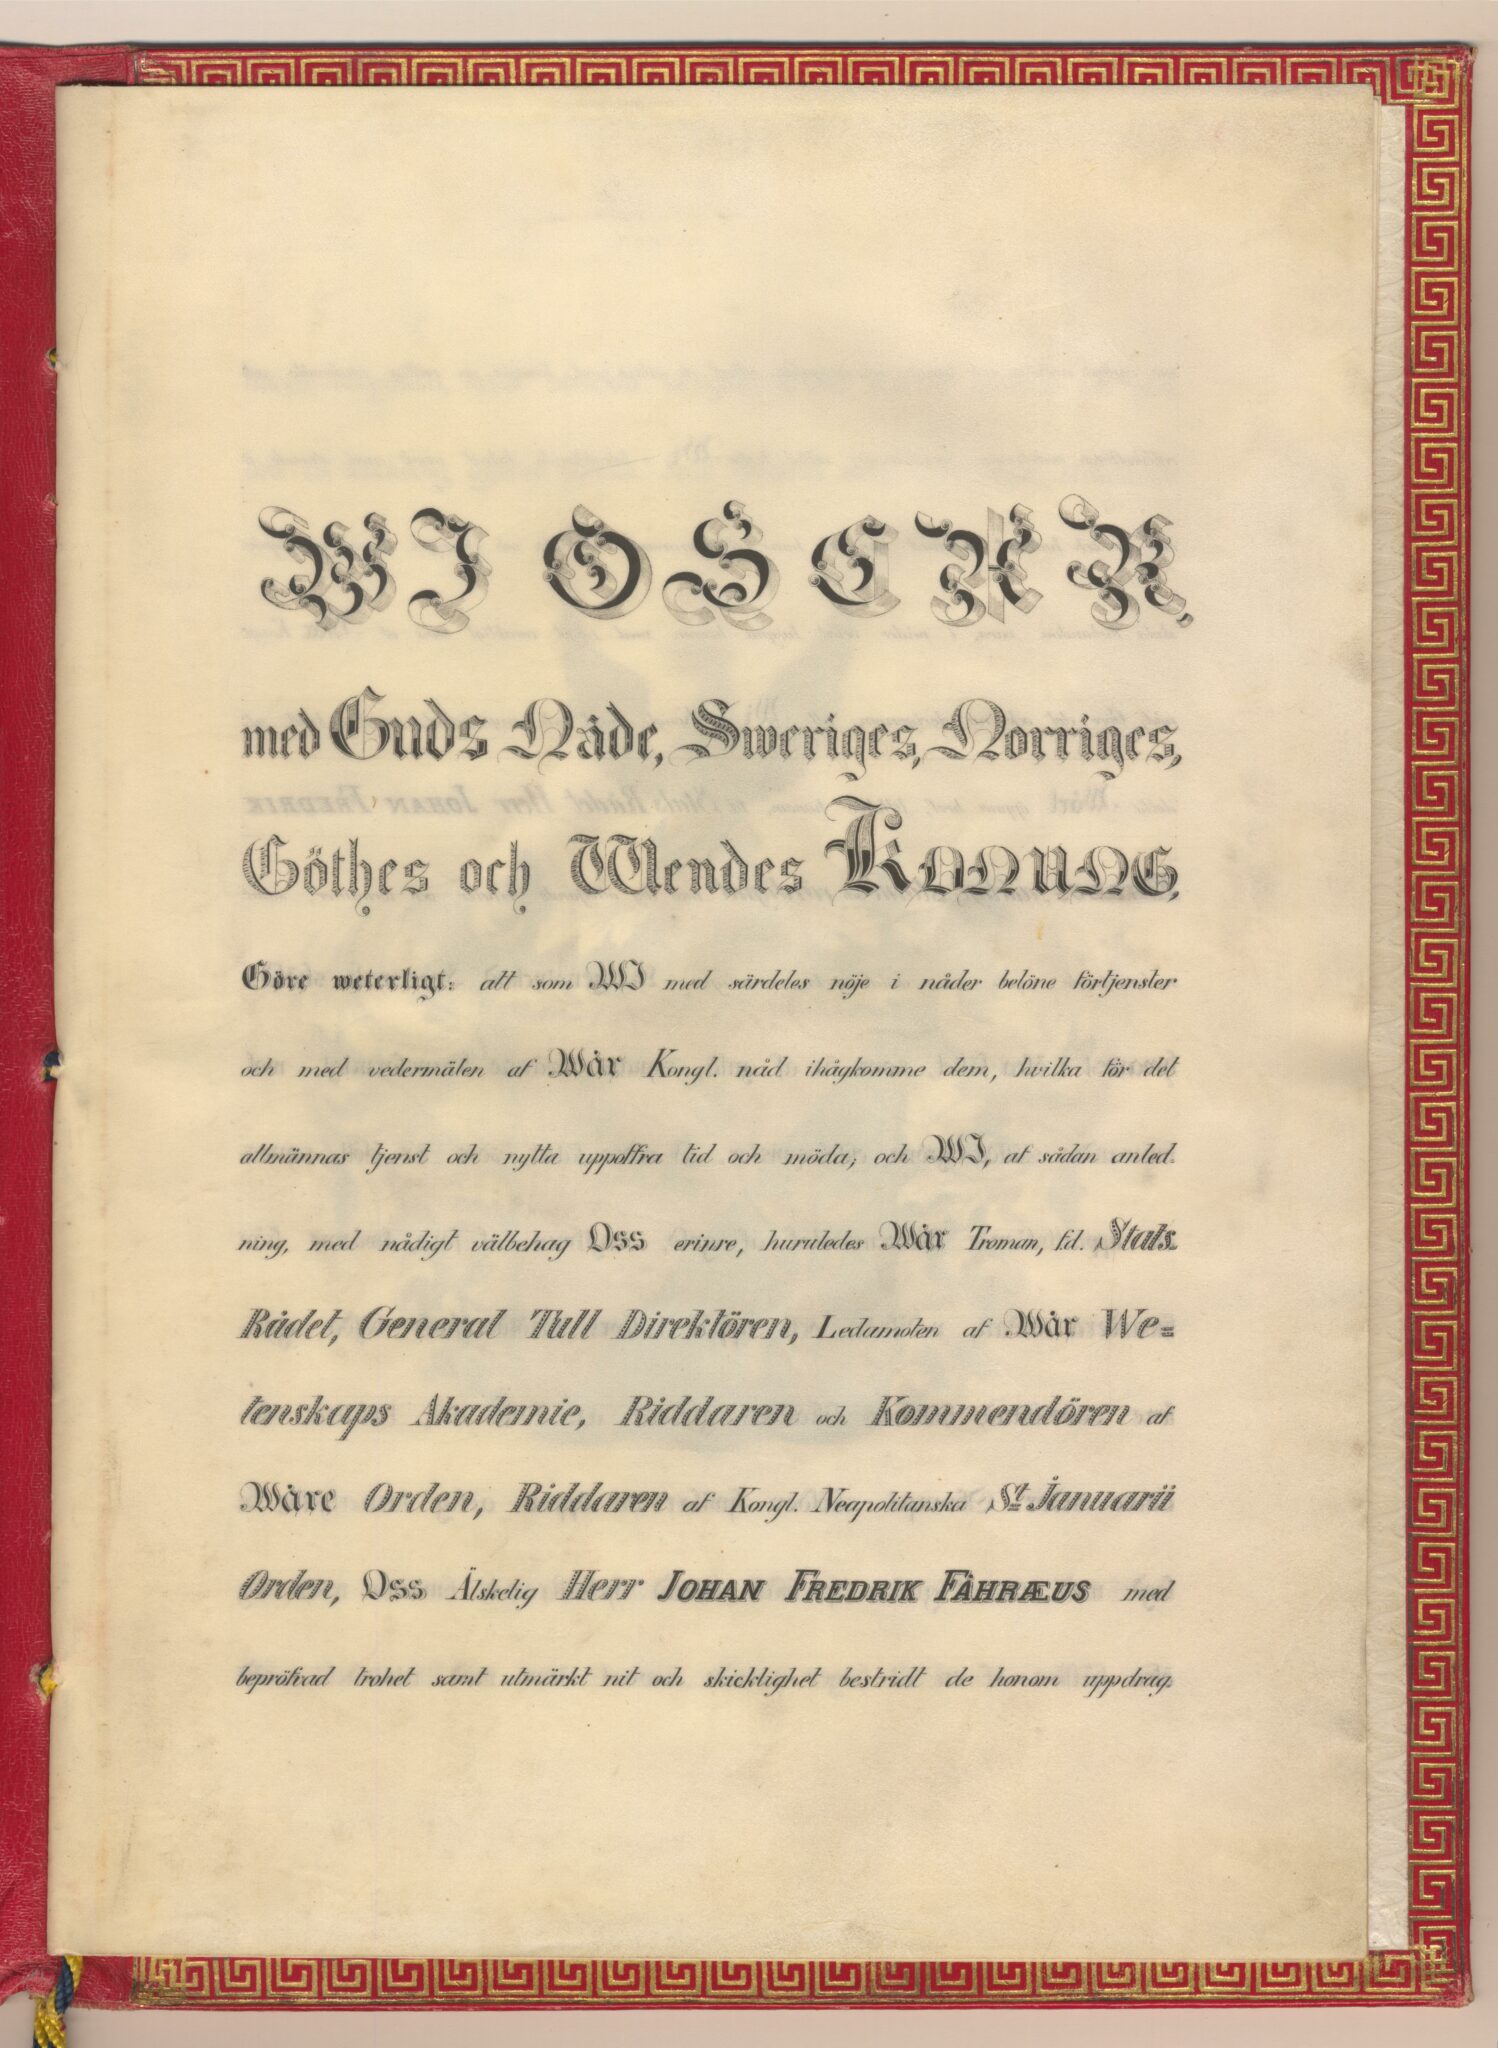 WI OSCAR,
med Guds Nåde, Sweriges, Norriges,
Göthes och Wendes KONUNG,
Göre weterligt: att som WI med särdeles nöje i nåder belöne förtjenster
och med vedermälen af Wår Kongl. nåd ihågkomme dem, hvilka för det
allmännas tjenst och nytta uppoffra tid och möda; och WI, af sådan anled-
ning, med nådigt välbehag Oss erinre, huruledes Wår Troman, f.d. Stats-
Rådet, General Tull Direktören, Ledamoten af Wår We-
tenskaps Akademie, Riddaren och Kommendören af
Wåre Orden, Riddaren af Kongl. Neapolitanska St Januarii
Orden, Oss Älskelig Herr JOHAN FREDRIK FÅHRÆUS med
bepröfvad trohet samt utmärkt nit och skicklighet bestridt de honom uppdrag-